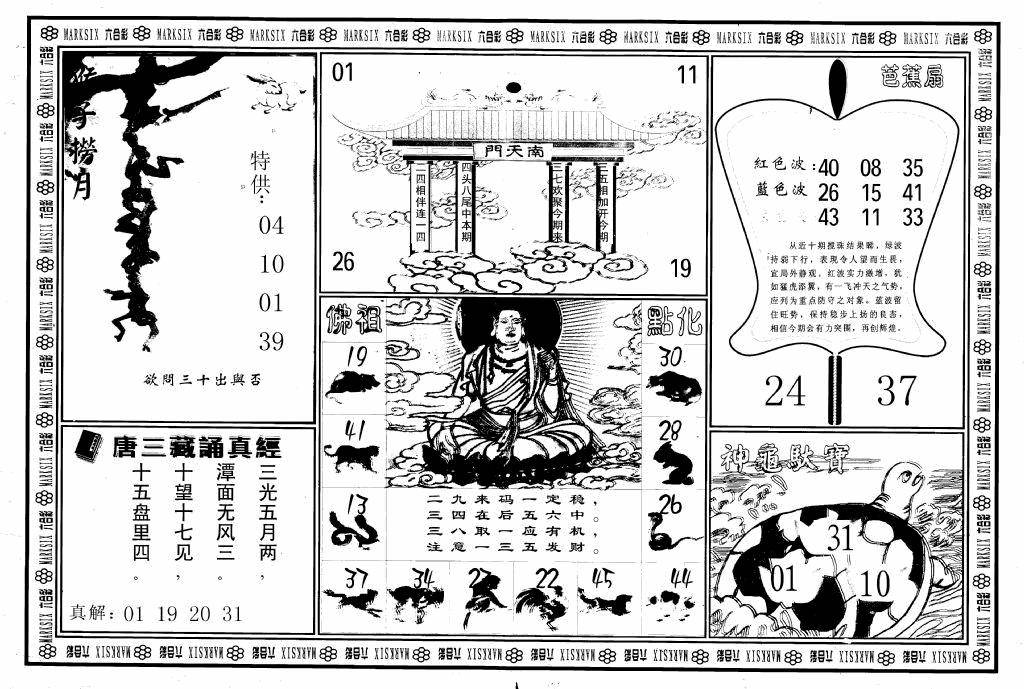 MARKSIX 六合彩 MARKSIX 六合彩 MARKSIX 六合彩 MARKSIX 六合彩 MARKSIX 六合彩 MARKSIX 六合彩 MARKSIX 六合彩 MARKSIX 六合彩 MARKSIX 六合彩 MARKSIX 六合彩
猴子撈月
特供:
04
10
01
39
欲問三十出與否
01
11
南天門
二四相伴连一四
四头八尾中本期
三七欢聚今期来
二五相加开今期
26
19
芭蕉扇
紅色波: 40 08 35
藍色波 26 15 41
43 11 33
从近十期搅珠结果睇，绿波
持弱下行，表现令人望而生畏，
宜局外静观。红波实力激增，犹
如猛虎添翼，有一飞冲天之气势，
应列为重点防守之对象。蓝波留
住旺势，保持稳步上扬的良态，
相信今期会有力突围，再创辉煌。
24
37
唐三藏誦真經
三光五月两，
潭面无风三。
十望十七见，
十五盘里四。
真解: 01 19 20 31
佛祖
點化
19
30
41
28
13
26
二九来码一定稳，
三四在后五六中。
三八取一应有机，
注意一三五发财。
37
34
22
45
44
神龜馱寶
31
01
10